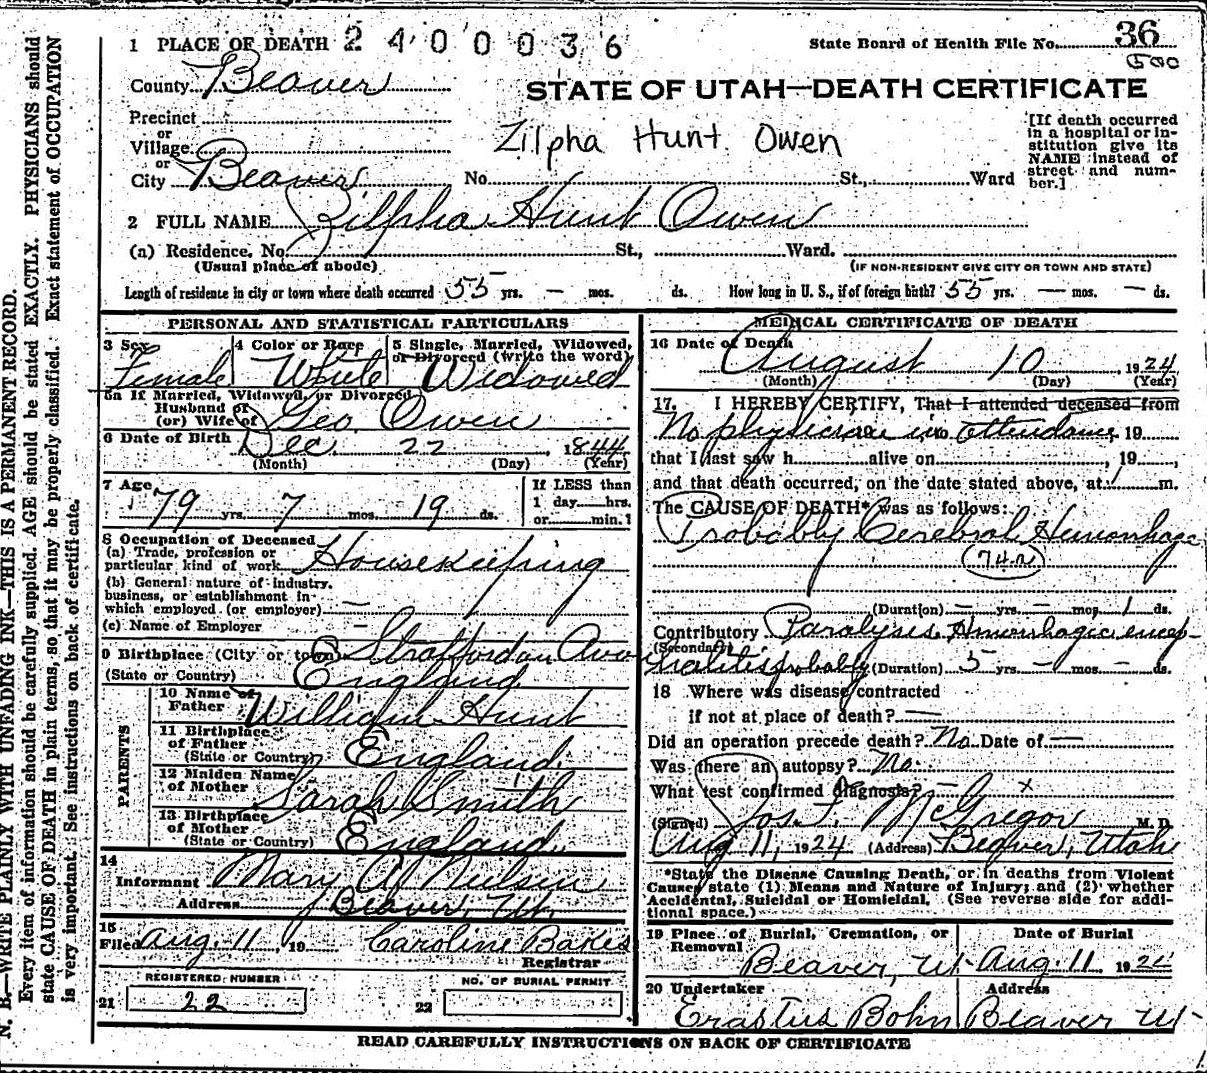 1 PLACE OF DEATH 2400036
State Board of Health File No. 36
County Beaver
STATE OF UTAH—DEATH CERTIFICATE
Precinct
or
Village
or
City Beaver No. St., Ward
Zilpha Hunt Owen
[If death occurred
in a hospital or in-
stitution give its
NAME instead of
street and num-
ber.]
2 FULL NAME Zilpha Hunt Owen
(a) Residence, No. St., Ward.
(Usual place of abode) (IF NON-RESIDENT GIVE CITY OR TOWN AND STATE)
Length of residence in city or town where death occurred 55 yrs. — mos. ds. How long in U. S., if of foreign birth? 55 yrs. — mos. — ds.
PERSONAL AND STATISTICAL PARTICULARS
3 Sex 4 Color or Race 5 Single, Married, Widowed,
or Divorced (write the word)
Female White Widowed
5a If Married, Widowed, or Divorced
Husband of
(or) Wife of Geo Owen
6 Date of Birth Dec 22, 1844
(Month) (Day) (Year)
7 Age 79 yrs. 7 mos. 19 ds.
If LESS than
1 day hrs.
or min.?
8 Occupation of Deceased
(a) Trade, profession or
particular kind of work Housekeeping
(b) General nature of industry,
business, or establishment in
which employed (or employer) —
(c) Name of Employer —
9 Birthplace (City or town) Straffordon Avo
(State or Country) England
PARENTS
10 Name of
Father William Hunt
11 Birthplace
of Father
(State or Country) England
12 Maiden Name
of Mother Sarah Smith
13 Birthplace
of Mother
(State or Country) England
14
Informant Mary A Neilsen
Address Beaver, Ut.
15
Filed Aug. 11, 19 Caroline Bakes
Registrar
REGISTERED NUMBER
21 22
NO. OF BURIAL PERMIT
22
MEDICAL CERTIFICATE OF DEATH
16 Date of Death August 10, 1924
(Month) (Day) (Year)
17. I HEREBY CERTIFY, That I attended deceased from
No physician in attendance, 19
that I last saw h alive on , 19 ,
and that death occurred, on the date stated above, at 1 m.
The CAUSE OF DEATH* was as follows:
Probably Cerebral Hemorrhage
74a
(Duration) — yrs. — mos. 1 ds.
Contributory Paralysis, Hemorrhagic encep-
(Secondary)
halitis probably (Duration) 5 yrs. — mos. — ds.
18 Where was disease contracted
if not at place of death? —
Did an operation precede death? No Date of —
Was there an autopsy? No.
What test confirmed diagnosis? x
(Signed) Jos. F. McGregor M. D.
Aug 11, 1924 (Address) Beaver, Utah
*State the Disease Causing Death, or in deaths from Violent
Causes, state (1) Means and Nature of Injury; and (2) whether
Accidental, Suicidal or Homicidal. (See reverse side for addi-
tional space.)
19 Place of Burial, Cremation, or
Removal Date of Burial
Beaver, Ut Aug. 11 1924
20 Undertaker Address
Erastus Bohn Beaver Ut
READ CAREFULLY INSTRUCTIONS ON BACK OF CERTIFICATE
N. B.—WRITE PLAINLY WITH UNFADING INK—THIS IS A PERMANENT RECORD.
Every item of information should be carefully supplied. AGE should be stated EXACTLY. PHYSICIANS should
state CAUSE OF DEATH in plain terms, so that it may be properly classified. Exact statement of OCCUPATION
is very important. See instructions on back of certificate.